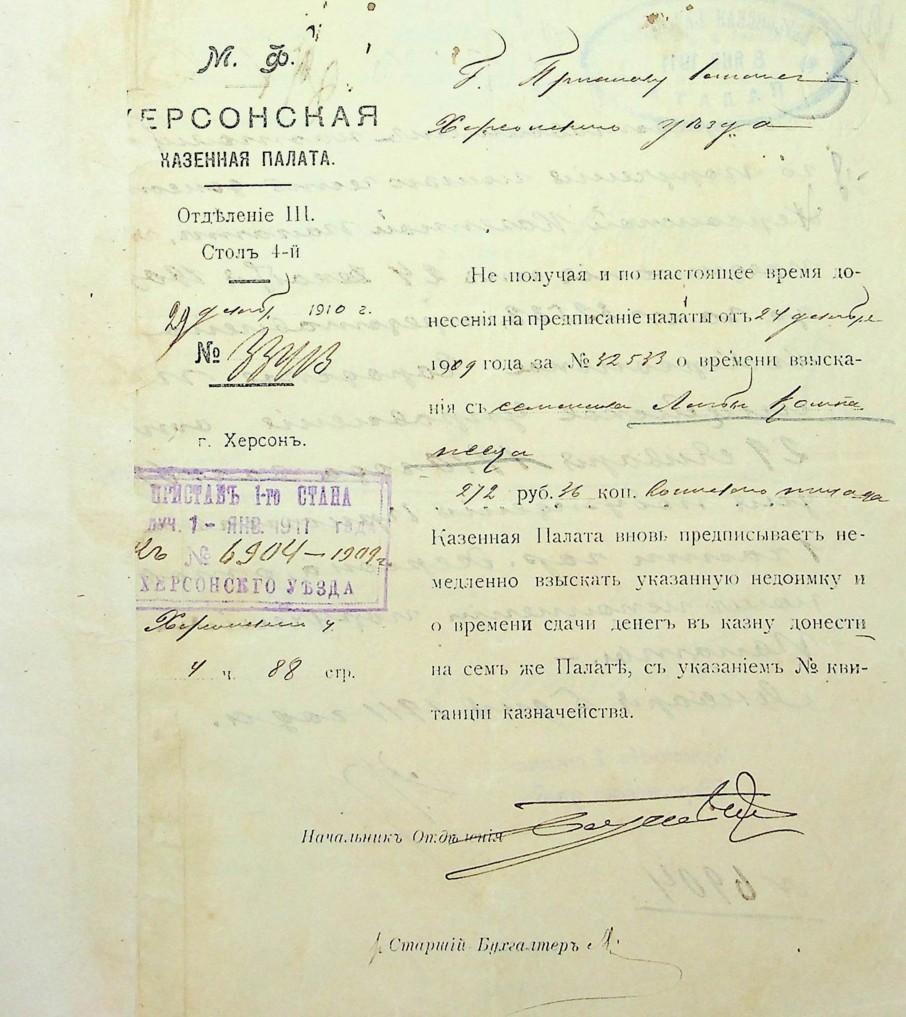 М. Ф.
ХЕРСОНСКАЯ
КАЗЕННАЯ ПАЛАТА.
Отдѣленіе III.
Столъ 4-й
29 декабр. 1910 г.
№ 33403
г. Херсонъ.
ПРИСТАВЪ 1-го СТАНА
ПОЛУЧ. 1 - ЯНВ. 1911 года
№ 6904-1909 г.
ХЕРСОНСКГО УѢЗДА
Херсонский у.
4 ч. 88 стр.
Г. Приставу 1 стана
Херсонского уѣзда
Не получая и по настоящее время до-
несенія на предписаніе палаты отъ 24 декабря
1909 года за № 32533 о времени взыска-
нія съ семейства Лейбы Компа
нееца
272 руб. 36 коп. воинского штрафа
Казенная Палата вновь предписываетъ не-
медленно взыскать указанную недоимку и
о времени сдачи денегъ въ казну донести
на семъ же Палатѣ, съ указаніемъ № кви-
танціи казначейства.
Начальникъ Отдѣленія
Старшій Бухгалтеръ